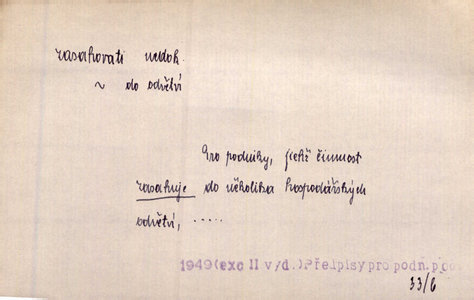 zasahovati nedok.
~ do odvětví
Pro podniky, jichž činnost
zasahuje do několika hospodářských
odvětví, .....
1949(exc II v/d.)Předpisy pro podn.p
33/6